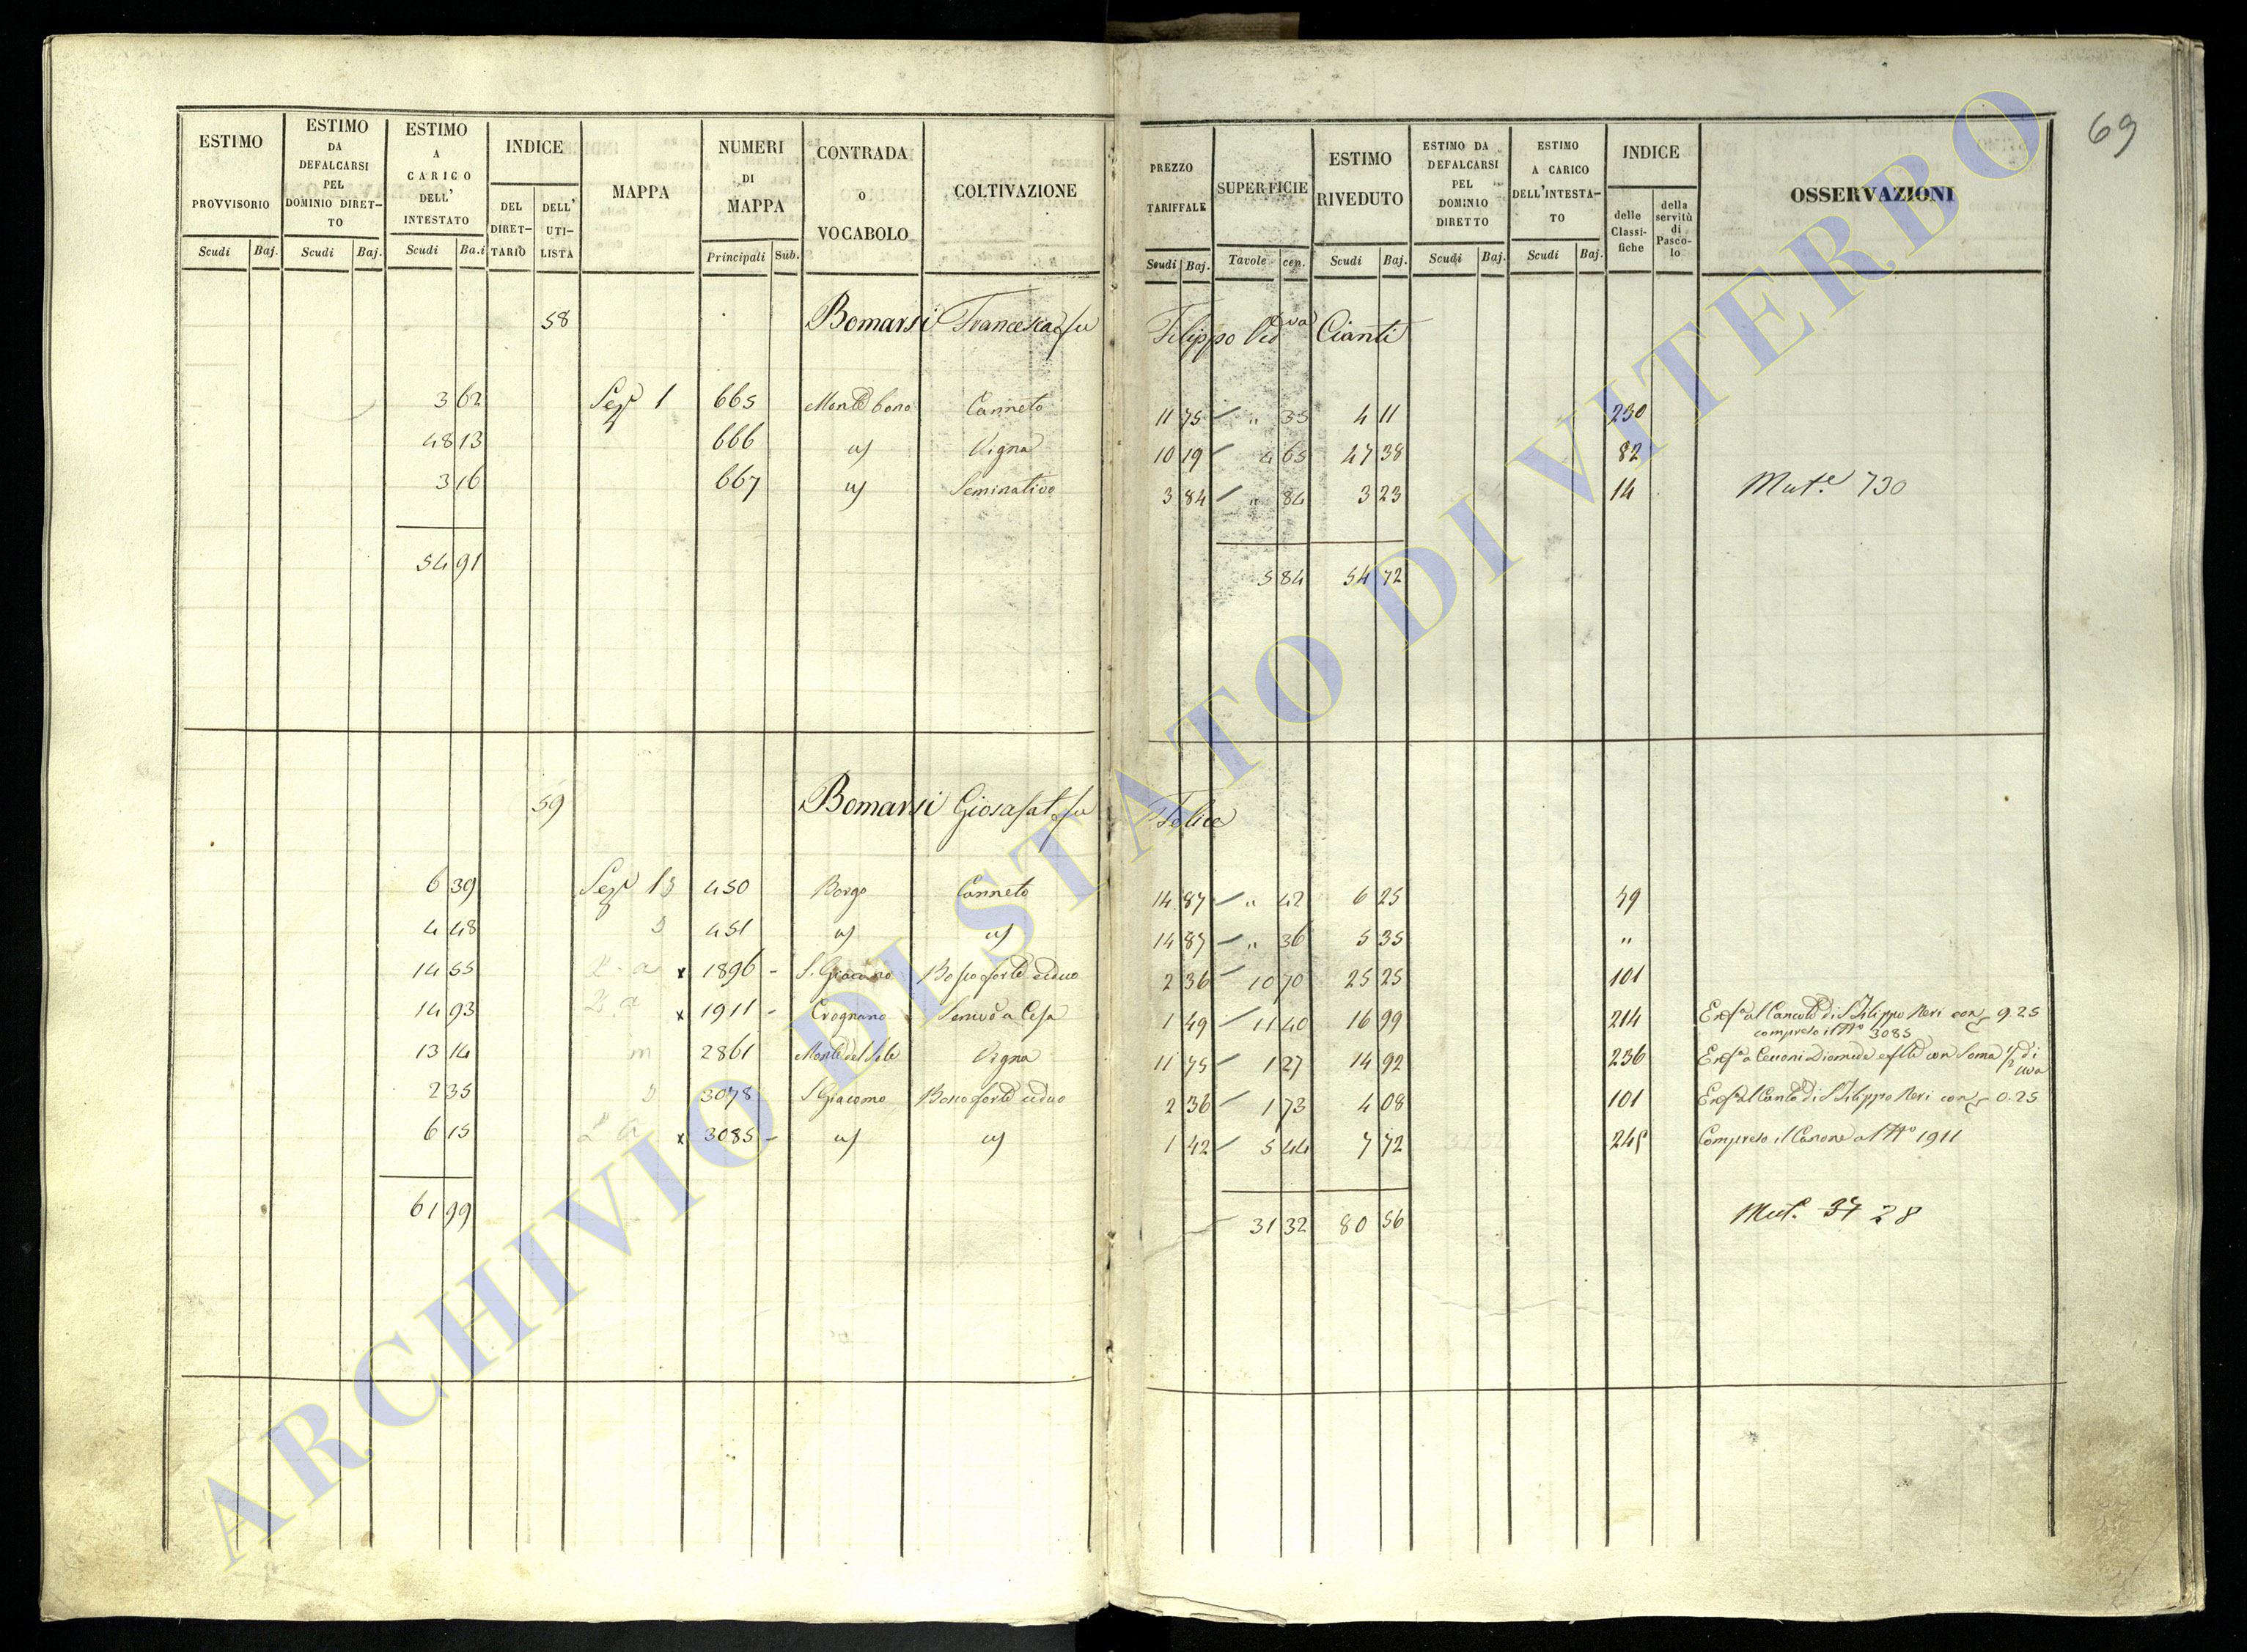 69
ESTIMO PROVVISORIO Scudi Baj.
ESTIMO DA DEFALCARSI PEL DOMINIO DIRET-TO Scudi Baj.
ESTIMO A CARICO DELL' INTESTATO Scudi Ba.i
INDICE DEL DIRET-TARIO DELL' UTI-LISTA
MAPPA
NUMERI DI MAPPA Principali Sub.
CONTRADA O VOCABOLO
COLTIVAZIONE
PREZZO TARIFFALE Scudi Baj.
SUPERFICIE Tavole cen.
ESTIMO RIVEDUTO Scudi Baj.
ESTIMO DA DEFALCARSI PEL DOMINIO DIRETTO Scudi Baj.
ESTIMO A CARICO DELL'INTESTA-TO Scudi Baj.
INDICE delle Classi-fiche della servitù di Pasco-lo
OSSERVAZIONI
58 Bomarsi Francesca fu Filippo Ved.va Cianti
3 62 Sez.e 1 665 Monte bono Canneto 11 75 " 35 4 11 230
48 13 666 Vigna 10 19 4 65 47 38 82
3 16 667 Seminativo 3 84 " 84 3 23 14 Mut.e 730
54 91 5 84 54 72
59 Bomarsi Giosafat fu Felice
6 39 Sez.e 13 450 Borgo Canneto 14 87 " 42 6 25 59
4 48 451 14 87 " 36 5 35 "
14 55 x 1896 - S. Giacomo Bosco forte ceduo 2 36 10 70 25 25 101
14 93 x 1911 - Crognano Semvo a Cesa 1 49 11 40 16 99 214 Enf.a al Canto di S Filippo Neri con 9. 25
compreso il No 3085
13 14 2861 Monte del Sole Vigna 11 75 1 27 14 92 236 Enf.a a Cecconi Diomede con Soma 1/2 di uva
2 35 3078 S Giacomo Bosco forte ceduo 2 36 1 73 4 08 101 Enf.a al Canto di S Filippo Neri con 0. 25
6 15 x 3085 - 1 42 5 44 7 72 245 Compreso il Canone al No 1911
61 99 31 32 80 56 Mut. 37 28
ARCHIVIO DI STATO DI VITERBO